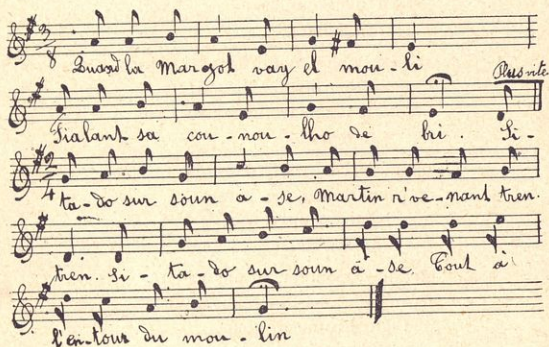 3/8
Quand la Margot vay el mou-li
Plus vite
Fialant sa cou-nou-lho de bri. Si-
2/4
ta-do sur soun a-se, Martin r've-nant tren.
tren. Si-ta-do sur soun â-se. Tout à
l'en-tour du mou-lin